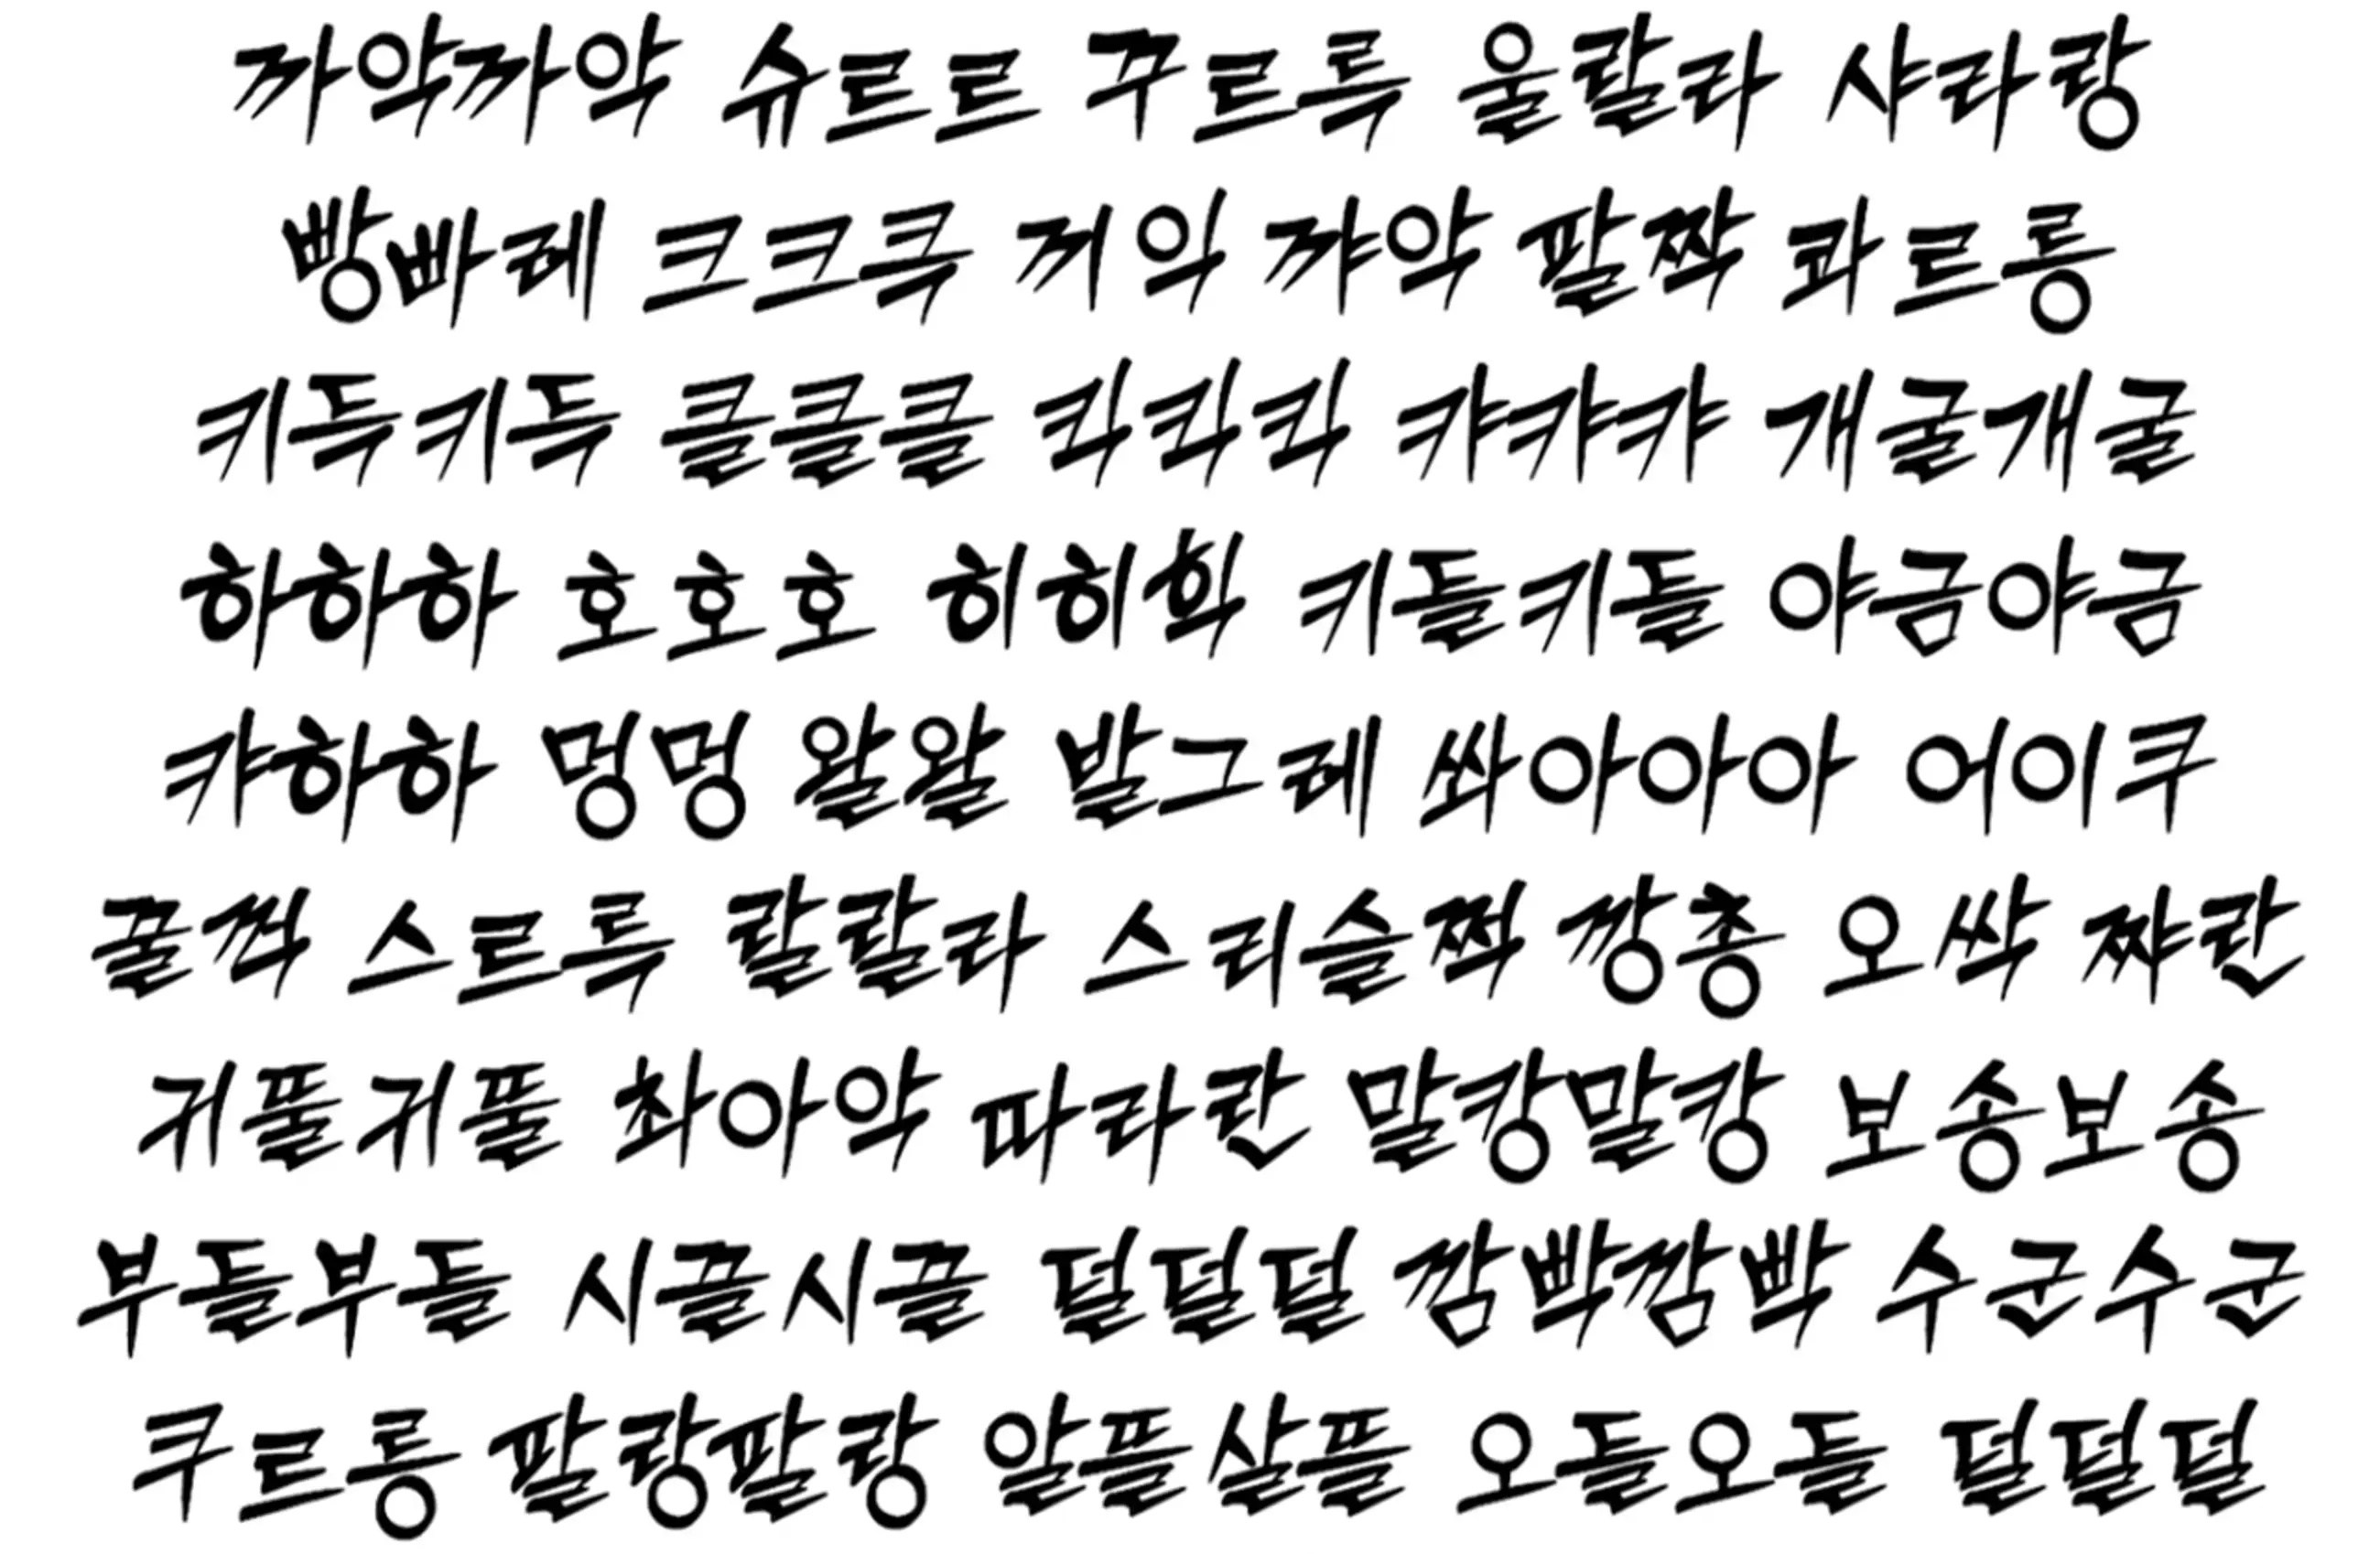 까악까악 슈르르 꾸르륵 울랄라 샤라랑
빵빠레 크크큭 끼익 꺄악 팔짝 콰르릉
키득키득 클클클 킥킥킥 캬캬캬 개굴개굴
하하하 호호호 히히힉 키들키들 야금야금
캬하하 멍멍 왈왈 발그레 쏴아아아 어이쿠
꿀꺽 스르륵 랄랄라 스리슬쩍 깡총 오싹 짜란
귀풀귀풀 촤아악 따라란 말캉말캉 보송보송
부들부들 시끌시끌 덜덜덜 깜빡깜빡 수군수군
쿠르릉 팔랑팔랑 알뜰살뜰 오들오들 덜덜덜